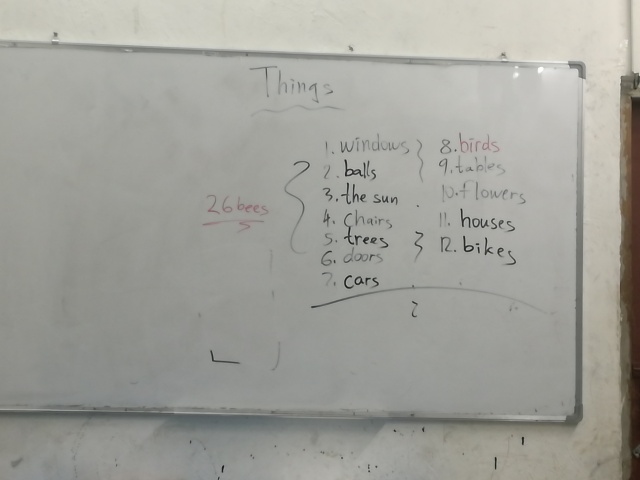 Things
26 bees
1. windows
2. balls
3. the sun
4. Chairs
5. trees
6. doors
7. cars
8. birds
9. tables
10. flowers
11. houses
12. bikes